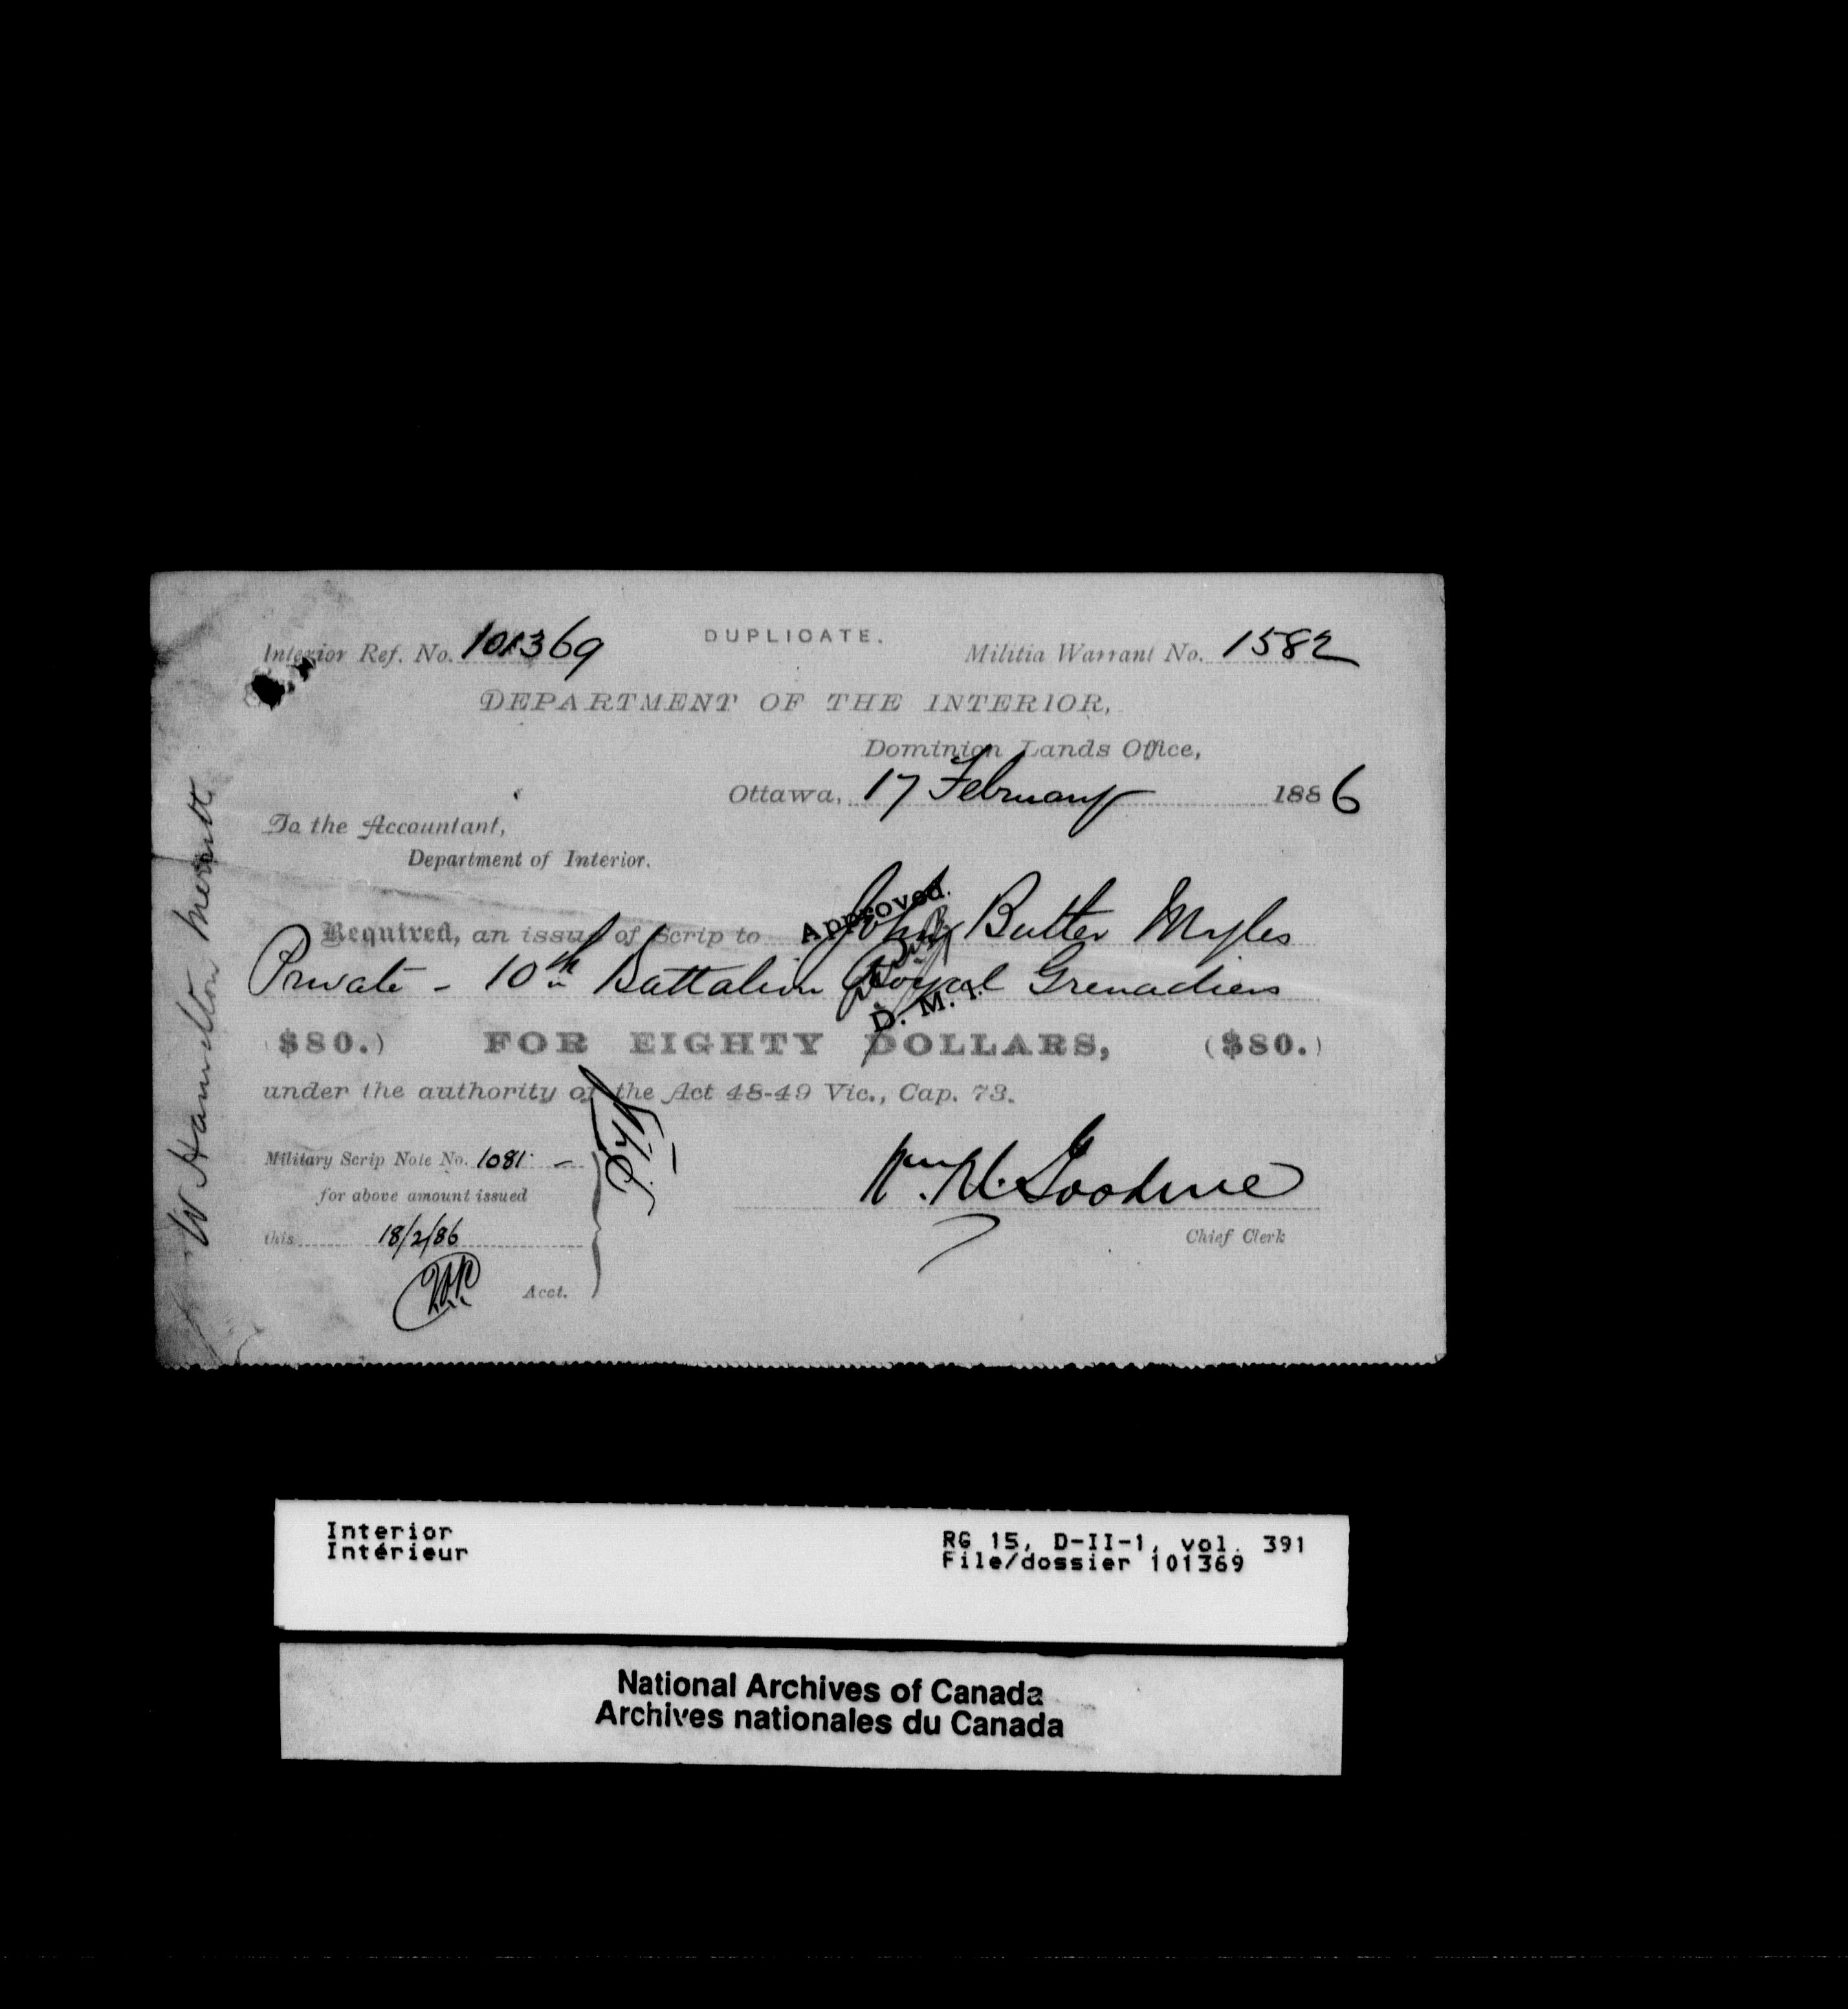 DUPLICATE.
Interior Ref. No. 101369
Militia Warrant No. 1582
DEPARTMENT OF THE INTERIOR,
Dominion Lands Office,
Ottawa, 17 February 1886
To the Accountant,
Department of Interior.
Approved.
Required, an issue of Scrip to John Butter Myles
Private - 10th Battalion Royal Grenadiers
D. M. I.
($80.) FOR EIGHTY DOLLARS, ($80.)
under the authority of the Act 48-49 Vic., Cap. 73.
Military Scrip Note No. 1081
for above amount issued
this 18/2/86
Acct.
Chief Clerk
W Hamilton Merritt
Interior
Intérieur
RG 15, D-II-1, vol. 391
File/dossier 101369
National Archives of Canada
Archives nationales du Canada